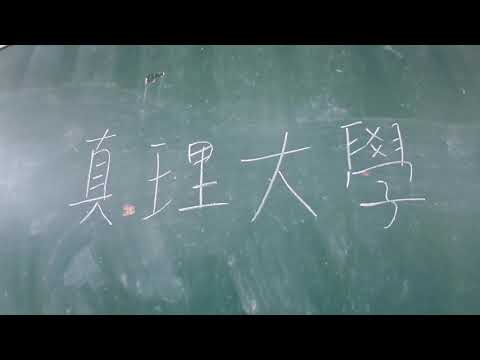 真理大學